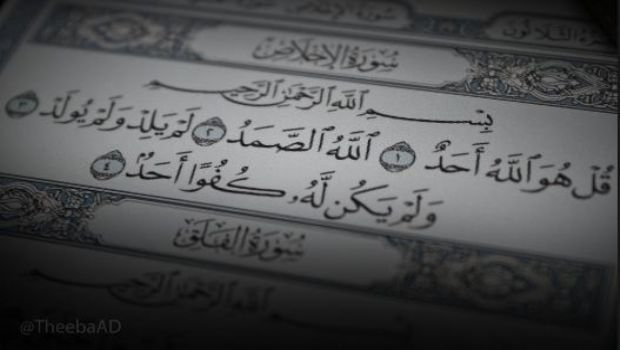 سُورَةُ الإِخْلَاصِ
بِسْمِ ٱللَّهِ ٱلرَّحْمَٰنِ ٱلرَّحِيمِ
قُلْ هُوَ ٱللَّهُ أَحَدٌ ١ ٱللَّهُ ٱلصَّمَدُ ٢ لَمْ يَلِدْ وَلَمْ يُولَدْ ٣
وَلَمْ يَكُن لَّهُۥ كُفُوًا أَحَدٌۢ ٤
سُورَةُ الفَلَقِ
بِسْمِ ٱللَّهِ ٱلرَّحْمَٰنِ ٱلرَّحِيمِ
@TheebaAD